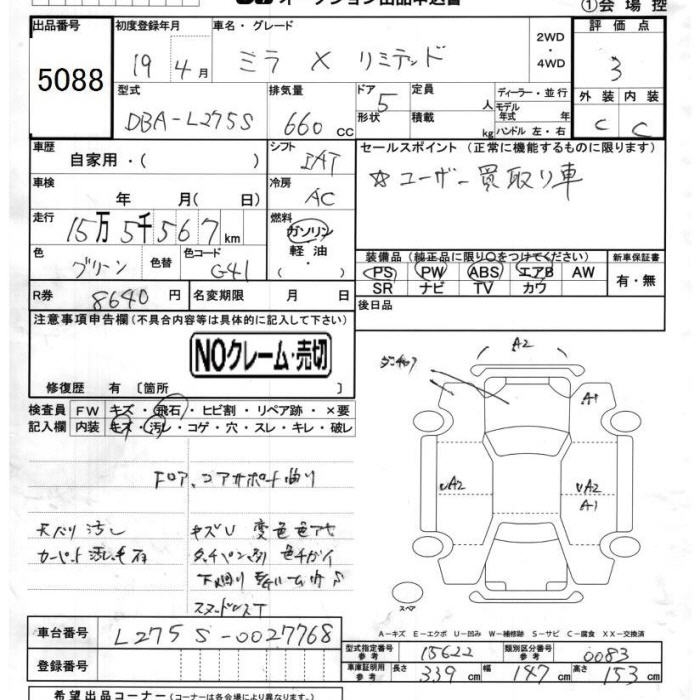 オークション出品申込書
①会場控
出品番号 初度登録年月 車名・グレード 2WD ・ 4WD 評価点
5088 19年 4月 ミラ X リミテッド 3
型式 排気量 ドア 定員 ディーラー・並行 外装 内装
DBA-L275S 660 CC 5 人 モデル年式 年 C C
形状 積載 kg ハンドル 左・右
車歴 自家用・( ) シフト IAT セールスポイント (正常に機能するものに限ります)
車検 年 月( 日) 冷房 AC ☆ユーザー買取り車
走行 15万5千567km 燃料 ガソリン 軽油 ・
色 グリーン 色替 色コード G41 装備品 (純正品に限り○をつけてください) 新車保証書
PS PW ABS エアB AW 有・無
SR ナビ TV カワ
R券 8640円 名変期限 月 日 後日品
注意事項申告欄(不具合内容等は具体的に記入して下さい)
NOクレーム・売切
修復歴 有 〔箇所 〕
検査員 FW キズ・飛石・ヒビ割・リペア跡・×要
記入欄 内装 キズ・汚レ・コゲ・穴・スレ・キレ・破レ
A2
A1
A2 A2
A1
コアサポート曲り
キズU 変色
色チガイ
スタッドレスT
スペア
A-キズ E-エクボ U-凹み W-補修跡 S-サビ C-腐食 XX-交換済
車台番号 L275S-0027768
型式指定番号 参考 15622 類別区分番号 参考 0083
登録番号 車庫証明用 参考 長さ 339cm 幅 147cm 高さ 153cm
希望出品コーナー(コーナーは各会場により異なります)